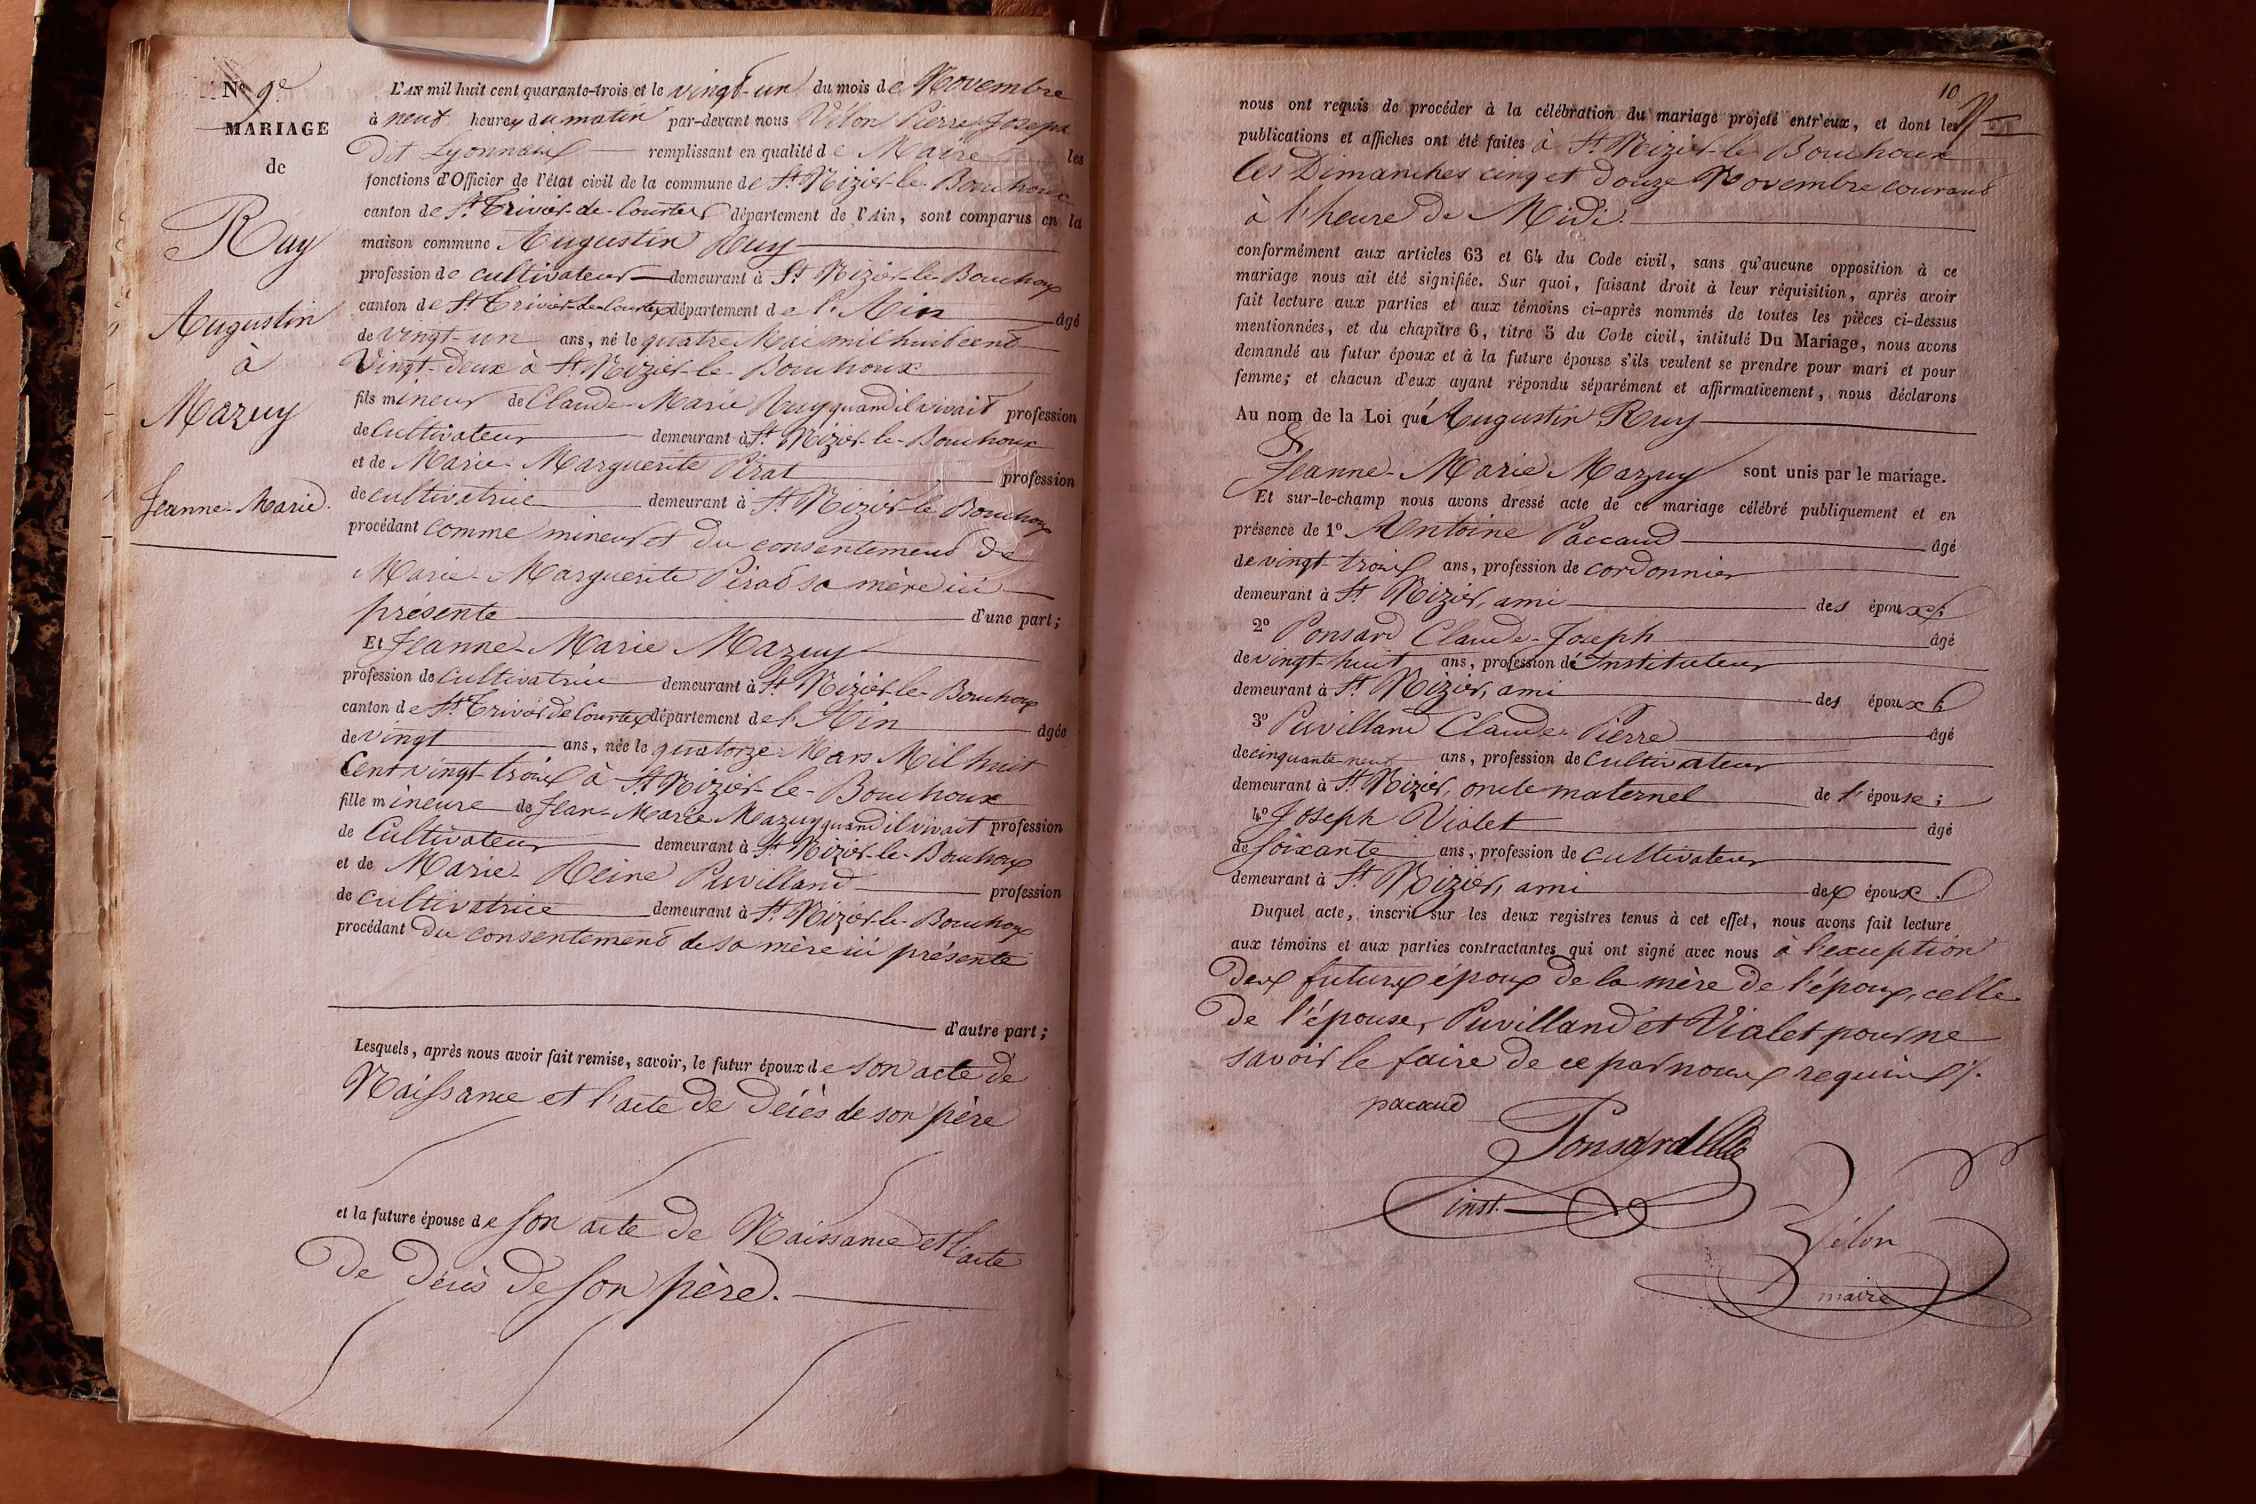 N.º 9.e
MARIAGE
de
Ruy
Augustin
à
Mazuy
Jeanne-Marie.
L'AN mil huit cent quarante-trois et le vingt-un du mois de Novembre
à neuf heures du matin par-devant nous Vélon Pierre Joseph
dit Lyonnais remplissant en qualité de Maire les
fonctions d'Officier de l'état civil de la commune de St. Nizier-le-Bouchoux
canton de St. Trivier-de-Courtes département de l'Ain, sont comparus en la
maison commune Augustin Ruy
profession de cultivateur demeurant à St. Nizier-le-Bouchoux
canton de St. Trivier-de-Courtes département de l'Ain âgé
de vingt-un ans, né le quatre Mai mil huit cent
Vingt-deux à St. Nizier-le-Bouchoux
fils mineur de Claude-Marie Ruy quand il vivait profession
de cultivateur demeurant à St. Nizier-le-Bouchoux
et de Marie-Marguerite Pirat profession
de cultivatrice demeurant à St. Nizier-le-Bouchoux
procédant comme mineur et du consentement de
Marie-Marguerite Pirat sa mère ici
présente d'une part;
Et Jeanne-Marie Mazuy
profession de cultivatrice demeurant à St. Nizier-le-Bouchoux
canton de St. Trivier de Courtes département de l'Ain âgée
de vingt ans, née le quatorze Mars Mil huit
Cent vingt-trois à St. Nizier-le-Bouchoux
fille mineure de Jean-Marie Mazuy quand il vivait profession
de Cultivateur demeurant à St. Nizier-le-Bouchoux
et de Marie-Reine Puvilland profession
de cultivatrice demeurant à St. Nizier-le-Bouchoux
procédant du consentement de sa mère ici présente
d'autre part;
Lesquels, après nous avoir fait remise, savoir, le futur époux de son acte de
Naissance et l'acte de décès de son père
et la future épouse de son acte de Naissance et l'acte
de décès de son père.
10
nous ont requis de procéder à la célébration du mariage projeté entr'eux, et dont les
publications et affiches ont été faites à St. Nizier-le-Bouchoux
les Dimanches cinq et douze Novembre courant
à l'heure de Midi.
conformément aux articles 63 et 64 du Code civil, sans qu'aucune opposition à ce
mariage nous ait été signifiée. Sur quoi, faisant droit à leur réquisition, après avoir
fait lecture aux parties et aux témoins ci-après nommés de toutes les pièces ci-dessus
mentionnées, et du chapitre 6, titre 5 du Code civil, intitulé Du Mariage, nous avons
demandé au futur époux et à la future épouse s'ils veulent se prendre pour mari et pour
femme; et chacun d'eux ayant répondu séparément et affirmativement, nous déclarons
Au nom de la Loi que Augustin Ruy
&
Jeanne-Marie Mazuy sont unis par le mariage.
Et sur-le-champ nous avons dressé acte de ce mariage célébré publiquement et en
présence de 1º Antoine Paccaud âgé
de vingt-trois ans, profession de cordonnier
demeurant à St. Nizier, ami des époux;
2º Ponsard Claude-Joseph âgé
de vingt-huit ans, profession d'Instituteur
demeurant à St. Nizier, ami des époux;
3º Puvilland Claude-Pierre âgé
de cinquante-neuf ans, profession de Cultivateur
demeurant à St. Nizier, oncle maternel de l'épouse;
4º Joseph Vialet âgé
de soixante ans, profession de cultivateur
demeurant à St. Nizier, ami des époux.
Duquel acte, inscrit sur les deux registres tenus à cet effet, nous avons fait lecture
aux témoins et aux parties contractantes qui ont signé avec nous à l'exception
des futurs époux de la mère de l'époux, celle
de l'épouse, Puvilland et Vialet pour ne
savoir le faire de ce par nous requis.
pacaud
Ponsard
inst.
Vélon
maire